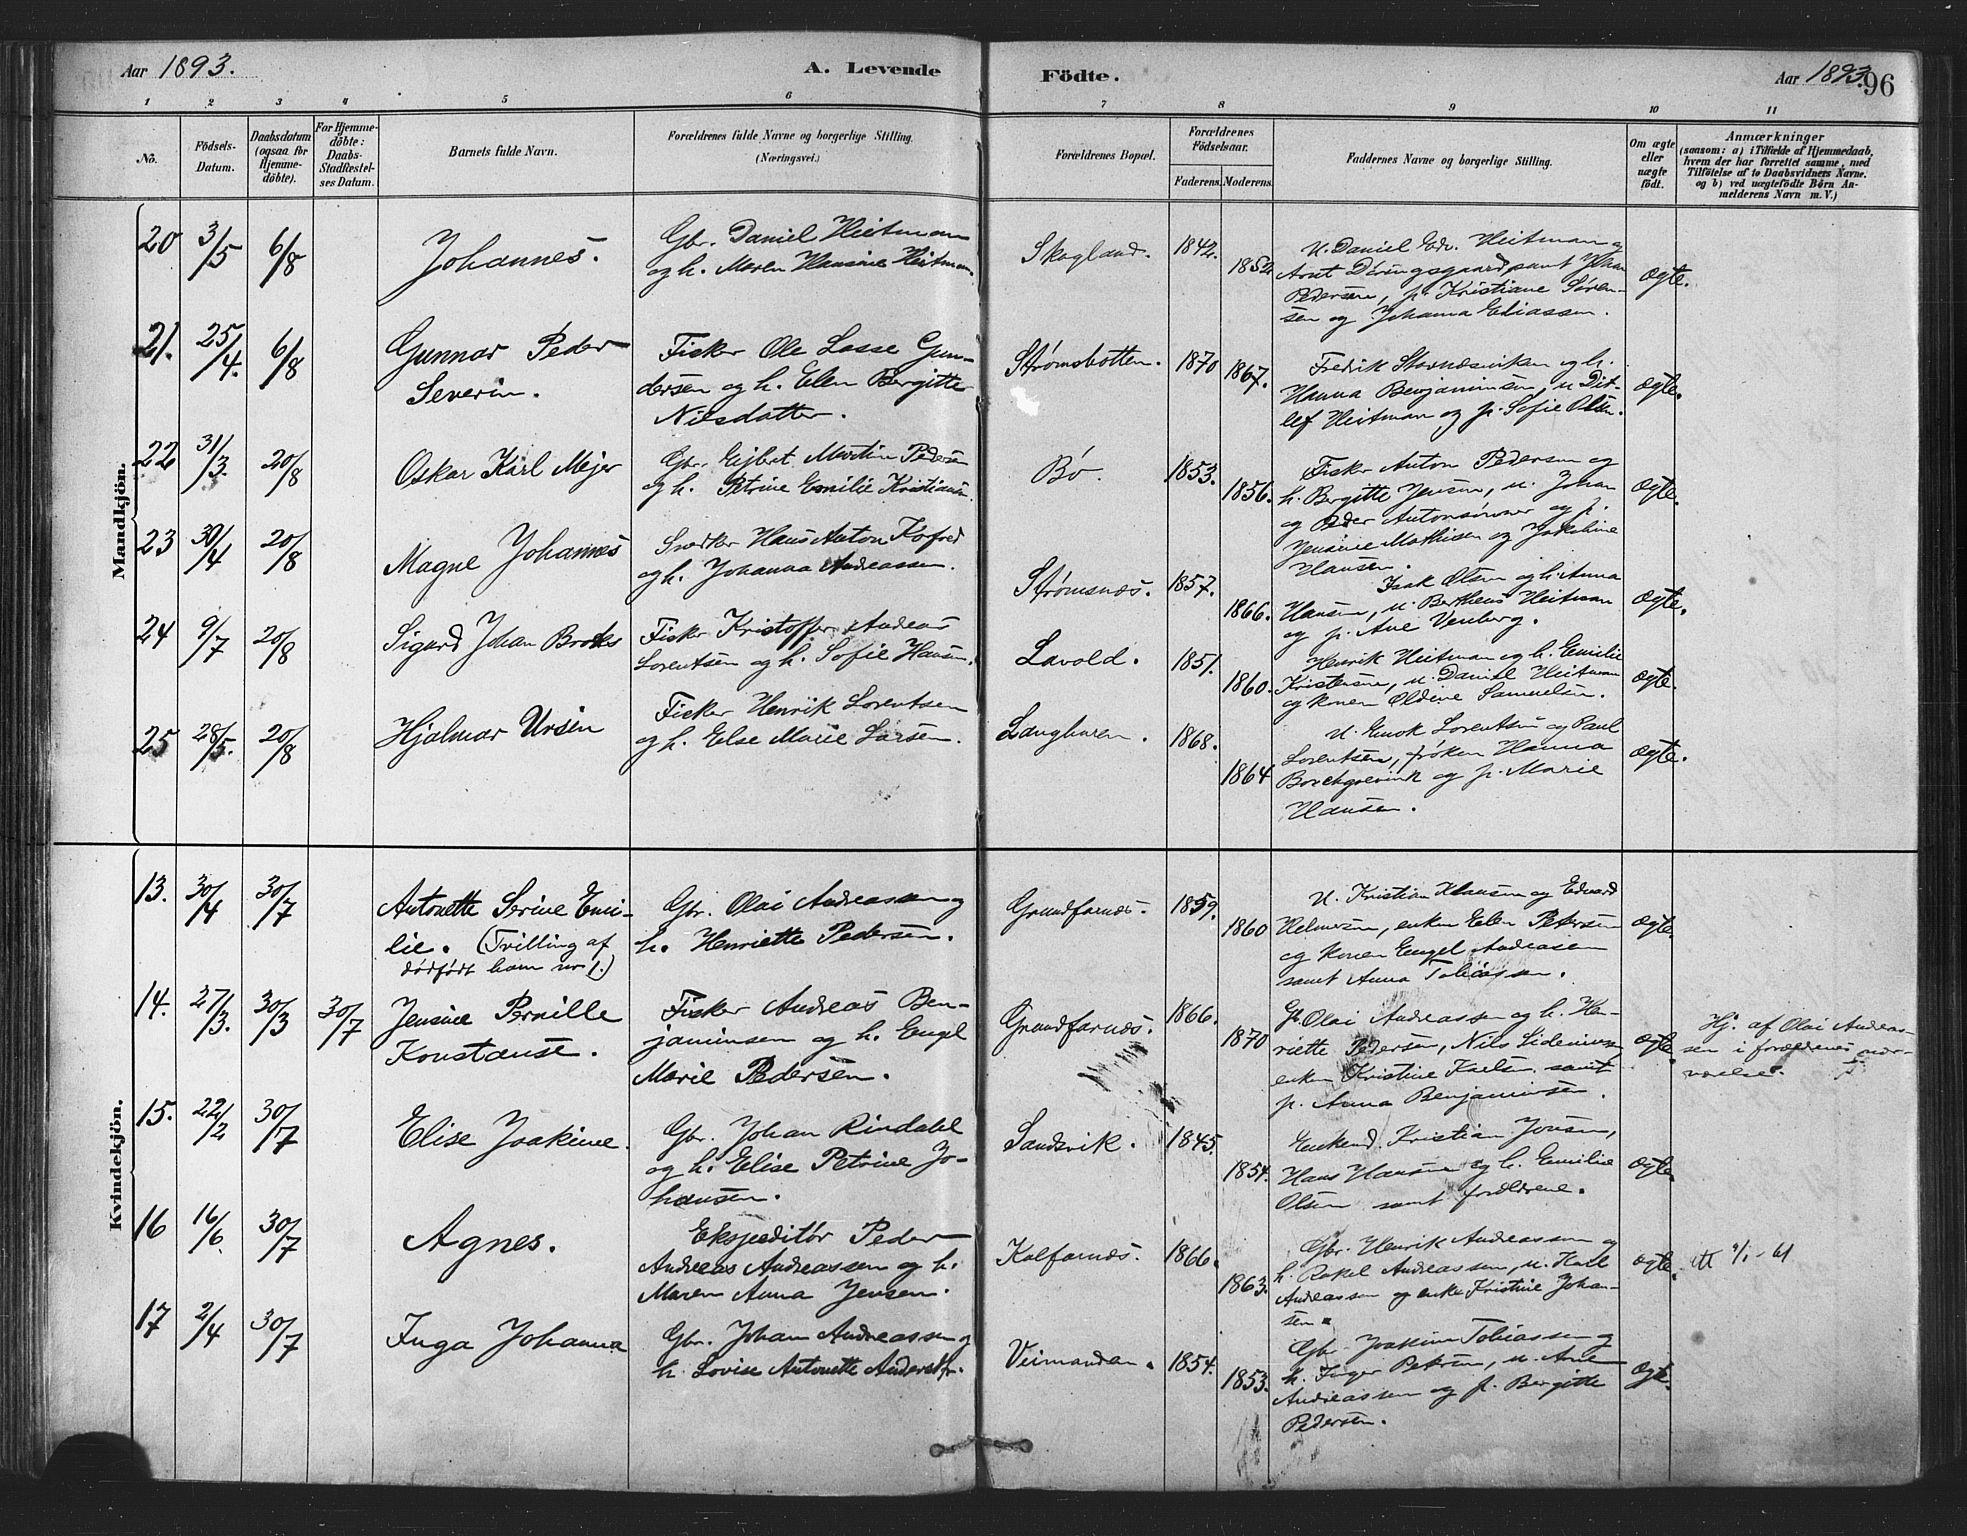 Aar 1893.
A. Levende
Födte.
Aar 1893.
96
1 2 3 4 5 6 7 8 9 10 11
No.
Födsels-
Datum.
Daabsdatum
(ogsaa for
Hjemme-
döbte).
For Hjemme-
döbte:
Daabs-
Stadfæstel-
ses Datum.
Barnets fulde Navn.
Forældrenes fulde Navne og borgerlige Stilling.
(Næringsvei.)
Forældrenes Bopæl.
Forældrenes
Födselsaar.
Faderens. Moderens.
Faddernes Navne og borgerlige Stilling.
Om ægte
eller
uægte
födt.
Anmærkninger
(saasom: a) i Tilfælde af Hjemmedaab,
hvem der har forrettet samme, med
Tilföielse af to Daabsvidners Navne.
og b) ved uægtefödte Börn An-
melderens Navn m. V.)
Mandkjön.
20 3/5 6/8 Johannes.
Gbr. Daniel Heitmann
og h. Maren Hansine Heitman.
Skogland. 1842. 1852
U. Daniel Edv. Heitman og
Arnt Dóringsgaard, samt Johan
Pedersen, p. Kristiane Sören-
sen og Johanna Eliassen.
ægte.
21. 25/4. 6/8 Gunnar Peder
Severin.
Fisker Ole Lasse Gun-
dersen og h. Elen Bergitte
Nilsdatter.
Strømsbotten. 1870 1867.
Fredrik Stavnæsviken og h.
Hanna Benjaminsen, u. Dit-
lef Heitman og p. Sofie Olsen.
ægte.
22 31/3. 20/8 Oskar Karl Mejer
Gbr. Eijbert Martin Pedersen
og h. Petrine Emilie Kristiansen.
Bö. 1853. 1856.
Fisker Anton Pedersen og
h. Bergitte Jensen, u. Johan
og Peder Antonsönner og p.
Jensine Mathisen og Jakobine
Hansen.
ægte.
23 30/4 20/8 Magne Johannes
Snedker Hans Anton Kofoed
og h. Johanna Andreassen.
Strømsnæs. 1857. 1866.
Isak Olsen og h. Anna
Hansen, u. Bertheus Heitman
og p. Ane Venberg.
ægte.
24 9/7 20/8 Sigurd Johan Broks
Fisker Kristoffer Andreas
Lorentsen og h. Sofie Hansen.
Lavold. 1851. 1860.
Henrik Heitman og h. Emilie
Kristensen, u. Daniel Heitman
og konen Oldine Samuelsen.
ægte.
25 28/5. 20/8 Hjalmar Ursin
Fisker Henrik Lorentsen
og h. Else Marie Larsen.
Langhuren. 1868. 1864
U. Enok Lorentsen og Paul
Lorentsen, frøken Hanna
Borchgrevink og p. Marie
Hansen.
ægte.
Kvindekjön.
13. 30/4 30/7 Antonette Serine Emi-
lie. (Tvilling af
dødfødt barn nr 1.)
Gbr. Olai Andreassen og
h. Henriette Pedersen.
Grundfarnæs. 1859. 1860
U. Kristian Klausen og Edvard
Helmersen, enken Elen Petersen
og konen Engel Andreasen
samt Anna Tobiassen.
ægte.
14. 27/3. 30/3 30/7 Jensine Pernille
Konstanse.
Fisker Andreas Ben-
jaminsen og h. Engel
Marie Pedersen.
Grundfarnæs. 1866. 1870
Gb. Olai Andreassen og h. Hen-
riette Pedersen, Nils Sidenius,
enken Kristine samt
p. Anna Benjaminsen.
ægte.
Hj. af Olai Andreas-
sen i forældrenes nær-
værelse.
15. 22/2 30/7 Elise Joakime.
Gbr. Johan Rindahl
og h. Elise Petrine Jo-
hansen.
Sandsvik. 1845. 1854.
Enkemd. Kristian Jonsen,
Hans Hansen og h. Emilie
Olsen samt forældrene.
ægte.
16 16/6. 30/7 Agnes.
Ekspeditör Peder
Andreas Andreassen og h.
Maren Anna Jensen.
Kalfarnæs. 1866. 1863.
Gbr. Henrik Andreassen og
h. Rakel Andreassen, u. Karl
Andreassen og enke Kristine Johan-
sen.
ægte.
17 2/4 30/7 Inga Johanna
Gbr. Johan Andreassen og
h. Lovise Antonette
Veimandan. 1854. 1853.
Gbr. Joakim Tobiassen og
h. Inger Petersen, u. Arne
Andreassen og p. Bergitte
Pedersen.
ægte.